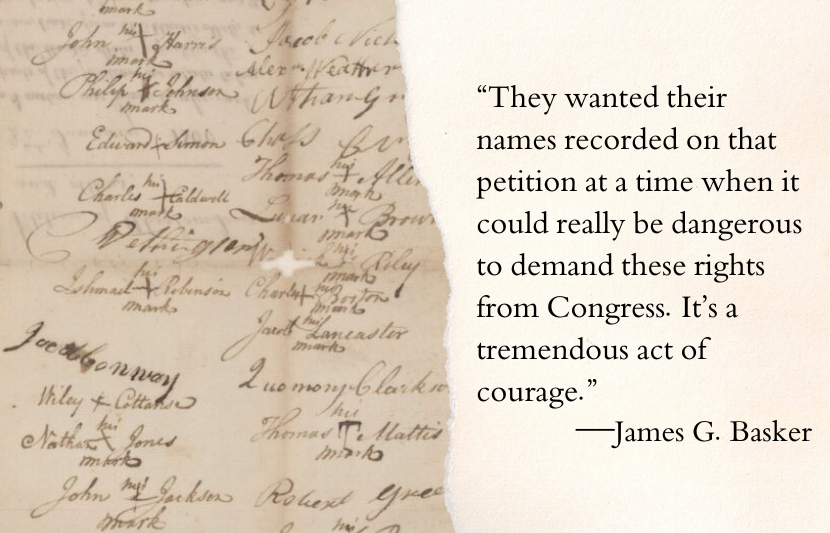 mark
John his Harris
mark
Philip his Johnson
mark
Edward Simon
Charles his Caldwell
mark
Ishmael his Robinson
mark
Jacob Conway
Wiley Cottanse
Nathan his Jones
mark
John his Jackson
mark
Jacob
Chas
Thomas his Allen
mark
Brown
mark
his Riley
mark
Charles his Boston
mark
Jacob his Lancaster
mark
Quomony Clarks
his
Thomas T Mattis
mark
Robert
his
“They wanted their
names recorded on that
petition at a time when it
could really be dangerous
to demand these rights
from Congress. It’s a
tremendous act of
courage.”
—James G. Basker